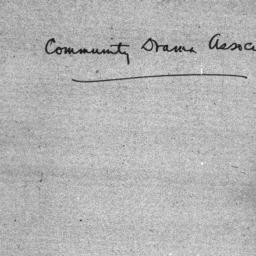 Community Drama Assoc